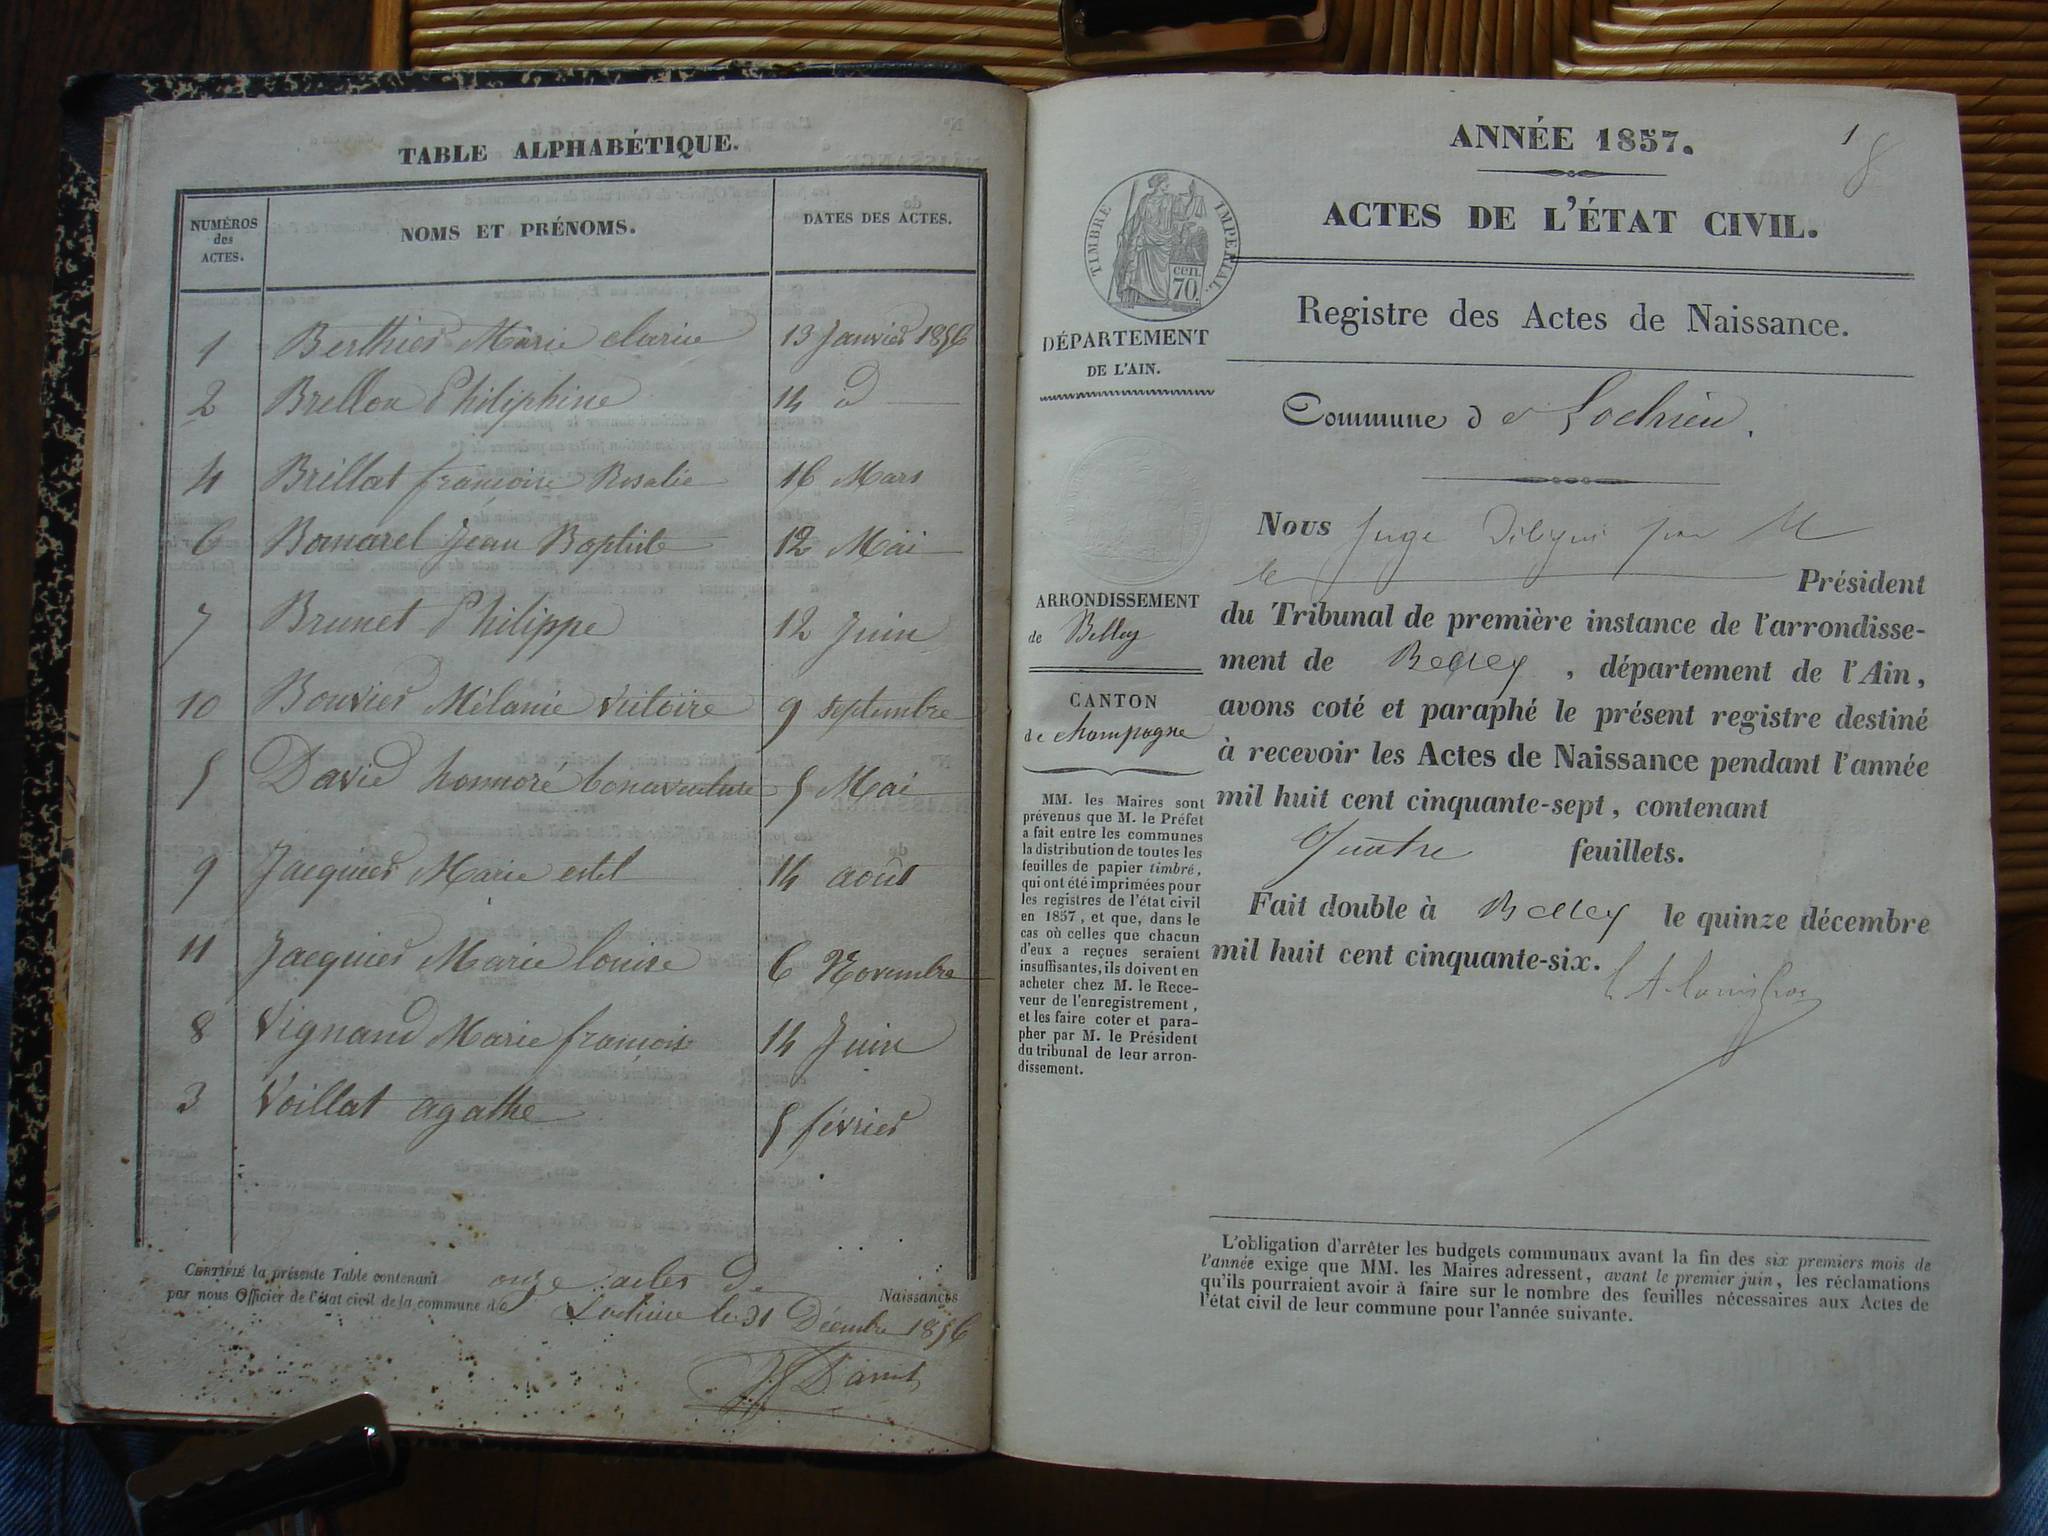 TABLE ALPHABÉTIQUE.
NUMÉROS des ACTES. NOMS ET PRÉNOMS. DATES DES ACTES.
1 Berthier Marie clarice 13 Janvier 1856
2 Brellon Philiphine 14 d
4 Brillat francoise Rosalie 16 Mars
6 Bonnarel Jean Baptiste 12 Mai
7 Brunet Philippe 12 Juin
10 Bouvier Mélanie Victoire 9 septembre
5 David honnoré bonaventure 5 Mai
9 Jacquier Marie estel 14 août
11 Jacquier Marie louise 6 Novembre
8 Vignand Marie francoise 14 Juin
3 Voillat agathe 5 février
CERTIFIÉ la présente Table contenant onze actes de Naissances
par nous Officier de l'état civil de la commune de Lochieu le 31 Décembre 1856
1
8
ANNÉE 1857.
ACTES DE L'ÉTAT CIVIL.
TIMBRE IMPERIAL.
cen.
70.
DÉPARTEMENT
DE L'AIN.
Registre des Actes de Naissance.
Commune de Lochieu.
ARRONDISSEMENT
de Belley
CANTON
de champagne
MM. les Maires sont
prévenus que M. le Préfet
a fait entre les communes
la distribution de toutes les
feuilles de papier timbré,
qui ont été imprimées pour
les registres de l'état civil
en 1857, et que, dans le
cas où celles que chacun
d'eux a reçues seraient
insuffisantes, ils doivent en
acheter chez M. le Rece-
veur de l'enregistrement,
et les faire coter et para-
pher par M. le Président
du tribunal de leur arron-
dissement.
Nous Juge délégué par M
le Président
du Tribunal de première instance de l'arrondisse-
ment de Belley, département de l'Ain,
avons coté et paraphé le présent registre destiné
à recevoir les Actes de Naissance pendant l'année
mil huit cent cinquante-sept, contenant
Quatre feuillets.
Fait double à Belley le quinze décembre
mil huit cent cinquante-six.
L'obligation d'arrêter les budgets communaux avant la fin des six premiers mois de
l'année exige que MM. les Maires adressent, avant le premier juin, les réclamations
qu'ils pourraient avoir à faire sur le nombre des feuilles nécessaires aux Actes de
l'état civil de leur commune pour l'année suivante.